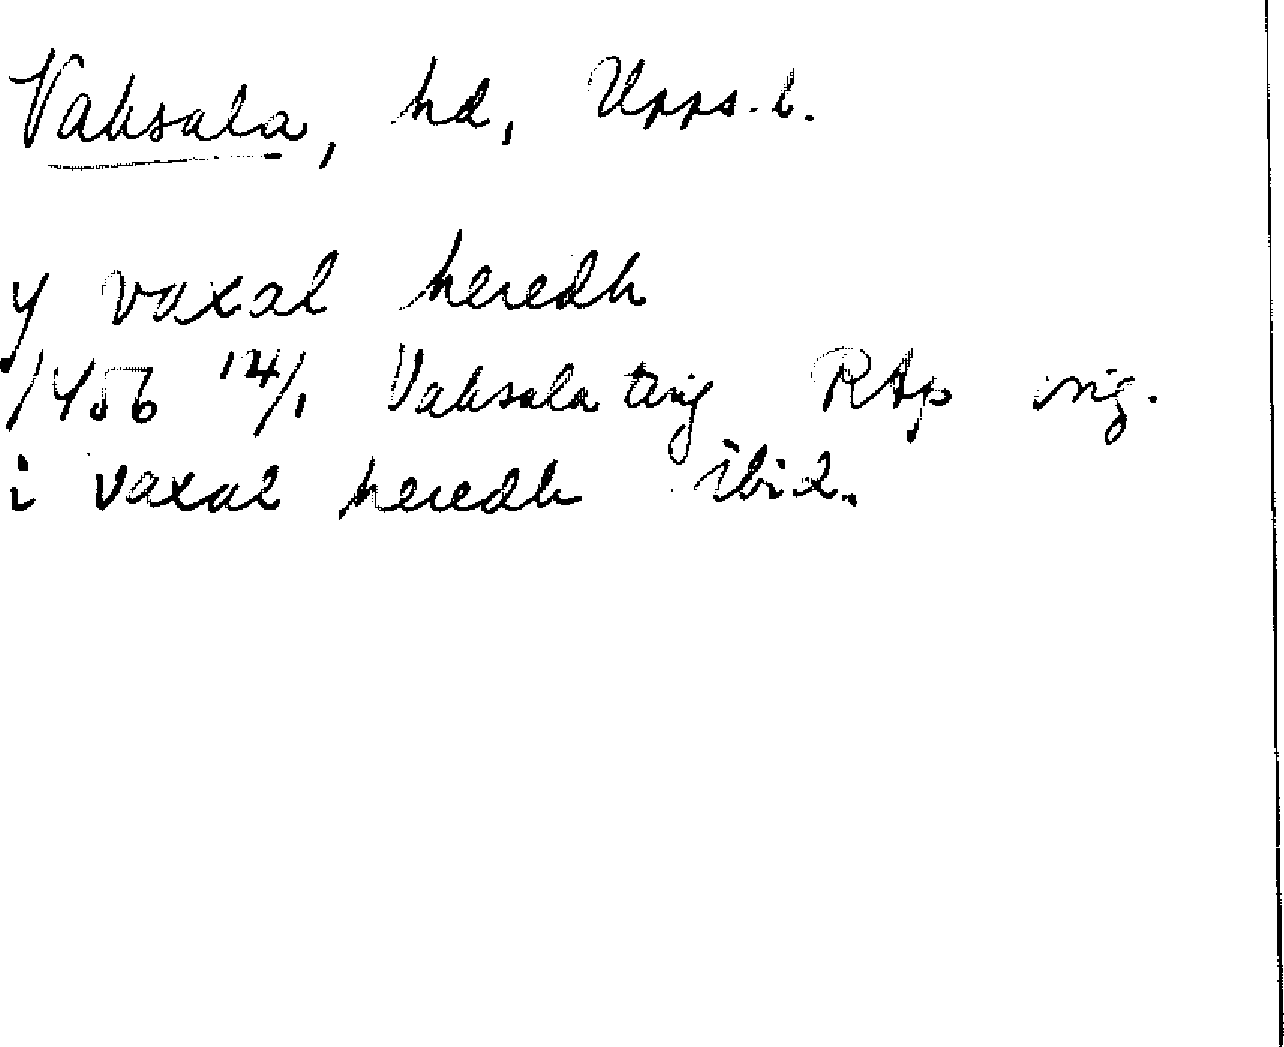 Vaksala, hd, Upps. l.
y vaxal heredh
1456 14/1 Vaksala ting RAp orig.
i vaxal heredh ibid.